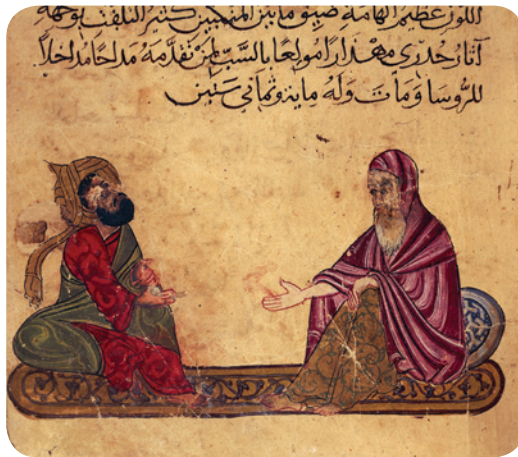 اللون عظيم الهامة ضيق ما بين المنكبين كثير التلفت بوجهه
آثار جدري مهذارًا مولعًا بالسب لمن تقدمه مداحًا مداخلًا
للروسا ومات وله ماية وثماني سنين